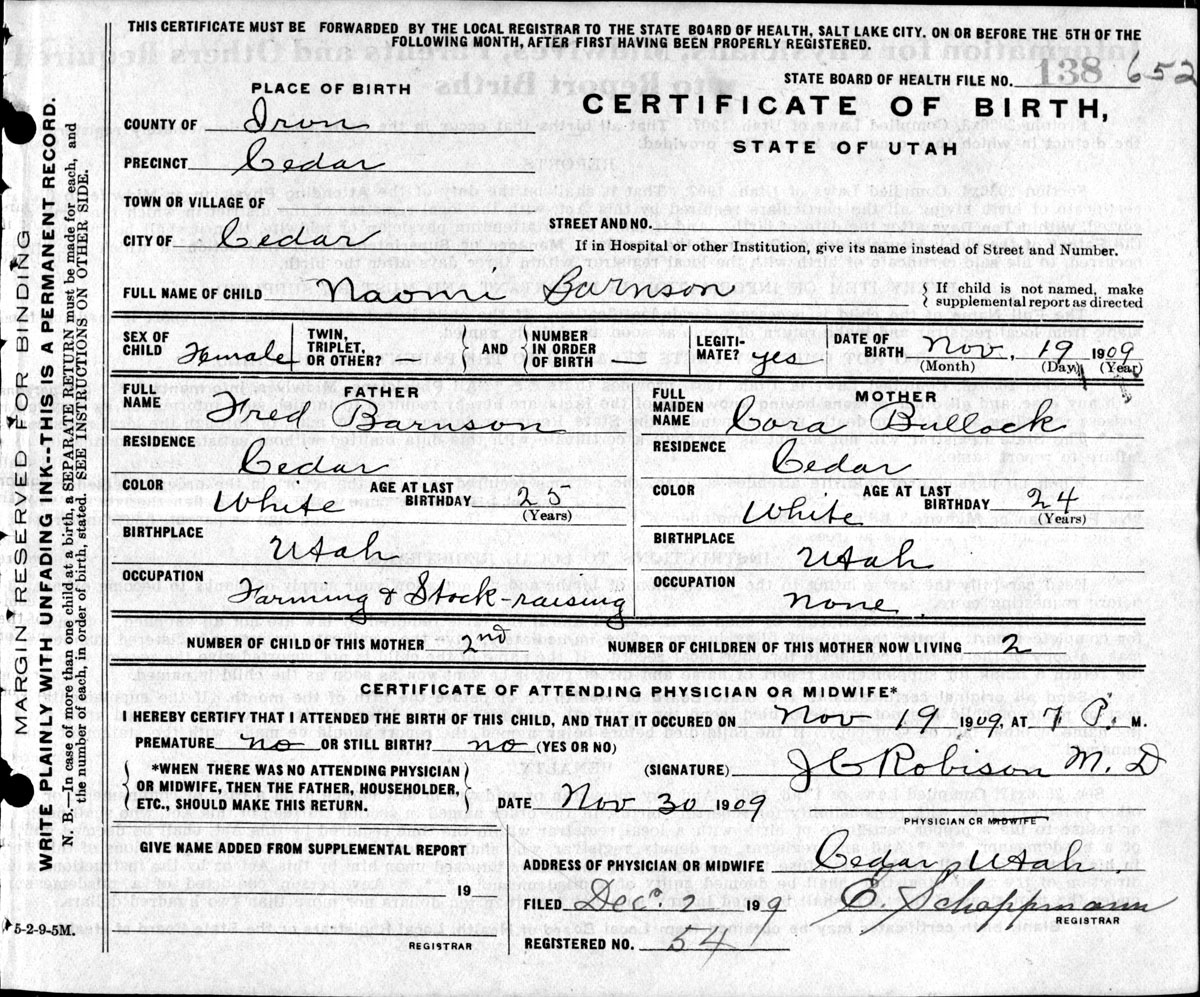 THIS CERTIFICATE MUST BE FORWARDED BY THE LOCAL REGISTRAR TO THE STATE BOARD OF HEALTH, SALT LAKE CITY. ON OR BEFORE THE 5TH OF THE
FOLLOWING MONTH, AFTER FIRST HAVING BEEN PROPERLY REGISTERED.
STATE BOARD OF HEALTH FILE NO. 138 652
PLACE OF BIRTH
CERTIFICATE OF BIRTH,
STATE OF UTAH
COUNTY OF Iron
PRECINCT Cedar
TOWN OR VILLAGE OF
STREET AND NO.
CITY OF Cedar
If in Hospital or other Institution, give its name instead of Street and Number.
FULL NAME OF CHILD Naomi Barnson
If child is not named, make
supplemental report as directed
SEX OF CHILD Female
TWIN, TRIPLET, OR OTHER?
AND
NUMBER IN ORDER OF BIRTH
LEGITI- MATE? yes
DATE OF BIRTH Nov, 19 1909
(Month) (Day) (Year)
FATHER
FULL NAME Fred Barnson
RESIDENCE
Cedar
COLOR White AGE AT LAST BIRTHDAY 25
(Years)
BIRTHPLACE
Utah
OCCUPATION
Farming & Stock-raising
MOTHER
FULL MAIDEN NAME Cora Bullock
RESIDENCE
Cedar
COLOR White AGE AT LAST BIRTHDAY 24
(Years)
BIRTHPLACE
Utah
OCCUPATION
none
NUMBER OF CHILD OF THIS MOTHER 2nd NUMBER OF CHILDREN OF THIS MOTHER NOW LIVING 2
CERTIFICATE OF ATTENDING PHYSICIAN OR MIDWIFE*
I HEREBY CERTIFY THAT I ATTENDED THE BIRTH OF THIS CHILD, AND THAT IT OCCURED ON Nov 19 1909, AT 7 P. M.
PREMATURE no OR STILL BIRTH? no (YES OR NO)
*WHEN THERE WAS NO ATTENDING PHYSICIAN
OR MIDWIFE, THEN THE FATHER, HOUSEHOLDER,
ETC., SHOULD MAKE THIS RETURN.
(SIGNATURE) J C Robison M. D
DATE Nov 30 1909
PHYSICIAN OR MIDWIFE
GIVE NAME ADDED FROM SUPPLEMENTAL REPORT
19
REGISTRAR
ADDRESS OF PHYSICIAN OR MIDWIFE Cedar, Utah.
FILED Dec. 2 19 9
REGISTRAR
REGISTERED NO. 54
5-2-9-5M.
MARGIN RESERVED FOR BINDING
WRITE PLAINLY WITH UNFADING INK--THIS IS A PERMANENT RECORD.
N. B.—In case of more than one child at a birth, a SEPARATE RETURN must be made for each, and
the number of each, in order of birth, stated. SEE INSTRUCTIONS ON OTHER SIDE.